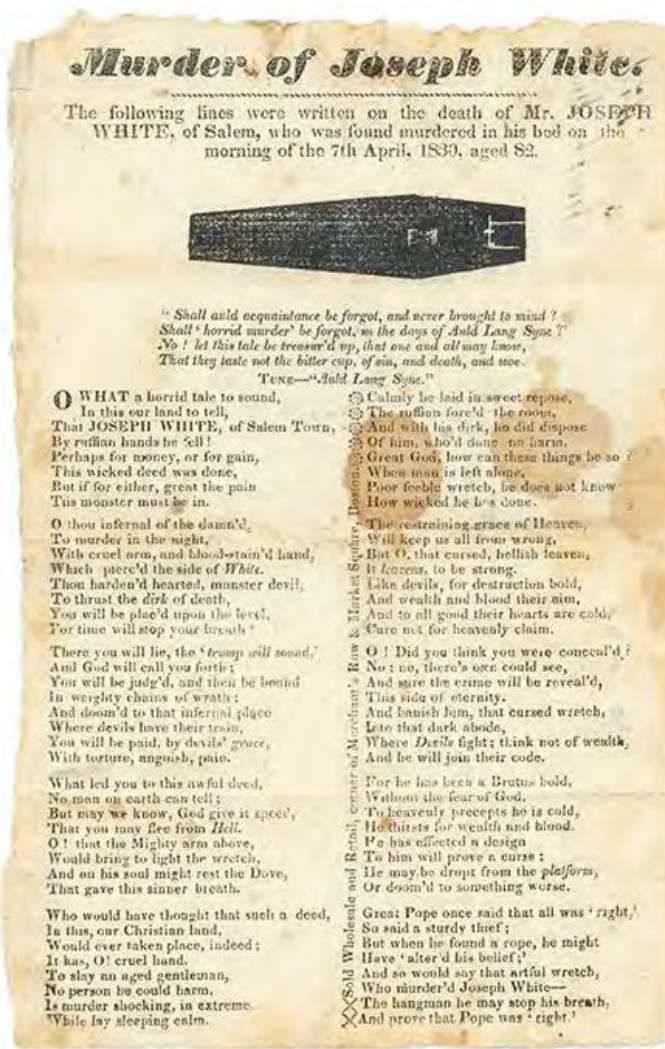 Murder of Joseph White.
The following lines were written on the death of Mr. JOSEPH
WHITE, of Salem, who was found murdered in his bed on the
morning of the 7th April, 1830, aged 82.
" Shall auld acquaintance be forgot, and never brought to mind ?
Shall ' horrid murder' be forgot, in the days of Auld Lang Syne ?
No ! let this tale be treasur'd up, that one and all may know,
That they taste not the bitter cup, of sin, and death, and woe.
TUNE—"Auld Lang Syne."
O WHAT a horrid tale to sound,
In this our land to tell,
That JOSEPH WHITE, of Salem Town,
By ruffian hands he fell !
Perhaps for money, or for gain,
This wicked deed was done,
But if for either, great the pain
This monster must be in.
O thou infernal of the damn'd,
To murder in the night,
With cruel arm, and blood-stain'd hand,
Which pierc'd the side of White.
Thou harden'd hearted, monster devil,
To thrust the dirk of death,
You will be plac'd upon the level,
For time will stop your breath !
There you will lie, the 'trump will sound,'
And God will call you forth ;
You will be judg'd, and then be bound
In weighty chains of wrath ;
And doom'd to that infernal place
Where devils have their train,
You will be paid, by devils' grace,
With torture, anguish, pain.
What led you to this awful deed,
No man on earth can tell ;
But may we know, God give it speed,
That you may flee from Hell.
O ! that the Mighty arm above,
Would bring to light the wretch,
And on his soul might rest the Dove,
That gave this sinner breath.
Who would have thought that such a deed,
In this, our Christian land,
Would ever taken place, indeed ;
It has, O! cruel hand.
To slay an aged gentleman,
No person he could harm,
Is murder shocking, in extreme.
While lay sleeping calm.
Sold Wholesale and Retail, corner of Merchant's Row & Market Square, Boston.
Calmly he laid in sweet repose,
The ruffian forc'd the room,
And with his dirk, he did dispose
Of him, who'd done no harm.
Great God, how can these things be so ?
When man is left alone,
Poor feeble wretch, he does not know
How wicked he has done.
The restraining grace of Heaven,
Will keep us all from wrong,
But O, that cursed, hellish leaven,
It leavens, to be strong.
Like devils, for destruction bold,
And wealth and blood their aim,
And to all good their hearts are cold,
Care not for heavenly claim.
O ! Did you think you were conceal'd ?
No ; no, there's ONE could see,
And sure the crime will be reveal'd,
This side of eternity.
And banish him, that cursed wretch,
Into that dark abode,
Where Devils fight ; think not of wealth,
And he will join their code.
For he has been a Brutus bold,
Without the fear of God.
To heavenly precepts he is cold,
He thirsts for wealth and blood.
He has effected a design
To him will prove a curse ;
He may be dropt from the platform,
Or doom'd to something worse.
Great Pope once said that all was ' right,'
So said a sturdy thief ;
But when he found a rope, he might
Have ' alter'd his belief ;'
And so would say that artful wretch,
Who murder'd Joseph White—
The hangman he may stop his breath,
And prove that Pope was ' right.'